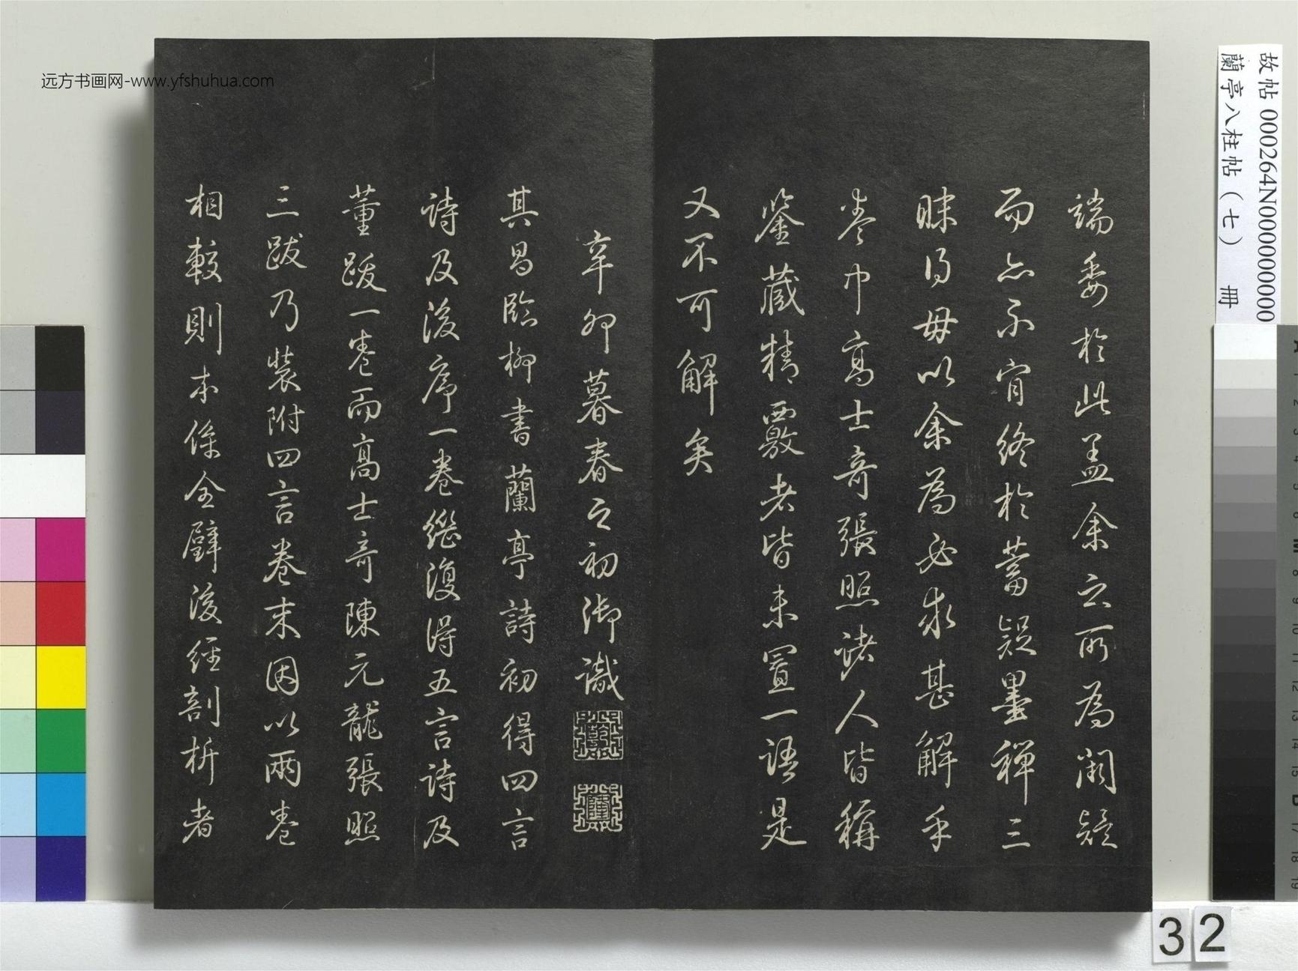 端委於此盖余之所為闕疑
而亦不肯終於蓄疑墨禅三
昧得毋以余為必求甚解乎
卷中高士奇張照諸人皆稱
鉴藏精覈者皆未置一語是
又不可解矣
辛卯暮春之初御識
其昌臨柳書蘭亭詩初得四言
詩及後序一卷繼復得五言詩及
董跋一卷而高士奇陳元龍張照
三跋乃裝附四言卷末因以兩卷
相較則本係全璧後經剖析者
远方书画网-www.yfshuhua.com
故帖 000264N000000000
蘭亭八柱帖（七） 冊
32